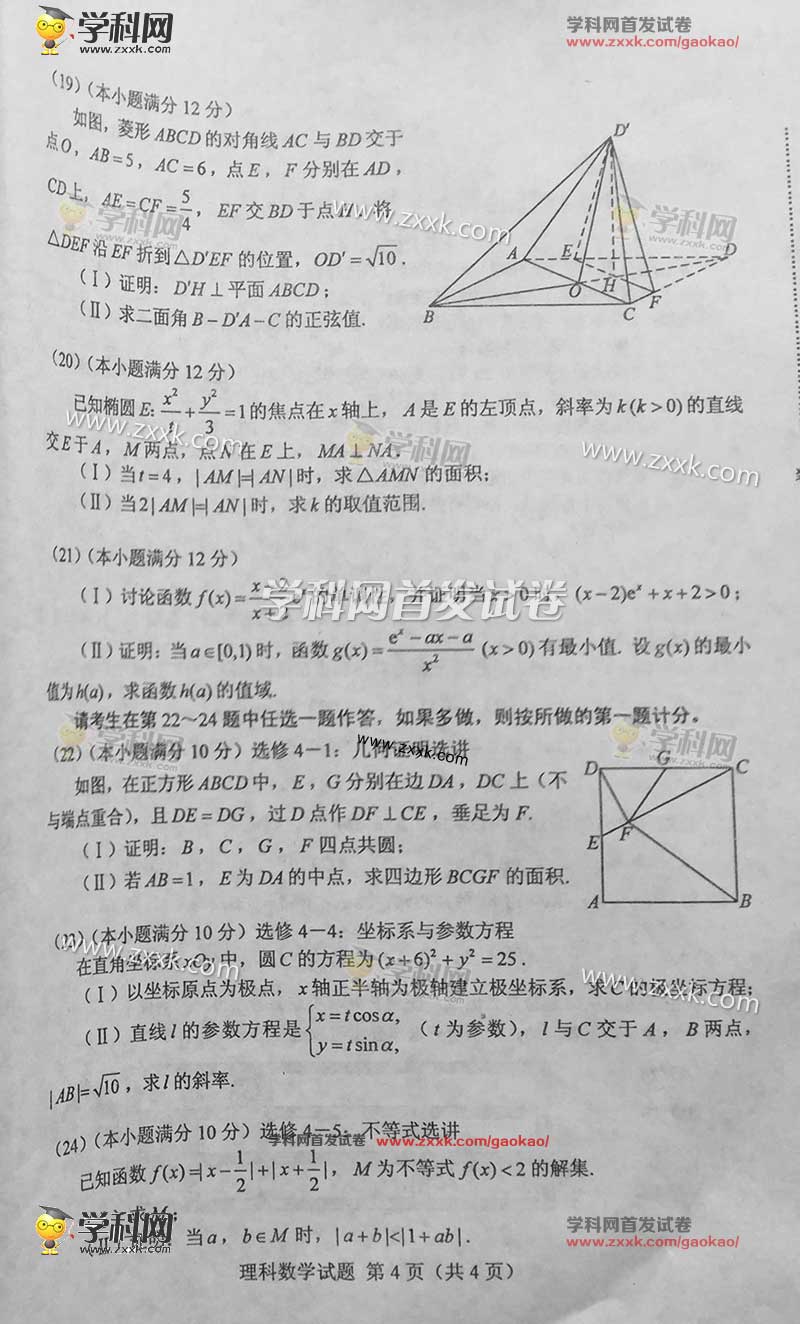 学科网
www.zxxk.com
学科网首发试卷
www.zxxk.com/gaokao/
(19)(本小题满分12分)
如图,菱形ABCD的对角线AC与BD交于
点O,AB=5,AC=6,点E,F分别在AD,
CD上,AE=CF=5/4,EF交BD于点H,将
△DEF沿EF折到△D′EF的位置,OD′=√10.
(Ⅰ)证明:D′H⊥平面ABCD;
(Ⅱ)求二面角B-D′A-C的正弦值.
D′
A
E
D
O
H
B
C
F
学科网
www.zxxk.com
www.zxxk.com
学科网
www.zxxk.com
(20)(本小题满分12分)
已知椭圆E:x²/t+y²/3=1的焦点在x轴上,A是E的左顶点,斜率为k(k>0)的直线
交E于A,M两点,点N在E上,MA⊥NA.
(Ⅰ)当t=4,|AM|=|AN|时,求△AMN的面积;
(Ⅱ)当2|AM|=|AN|时,求k的取值范围.
www.zxxk.com
学科网
www.zxxk.com
(21)(本小题满分12分)
(Ⅰ)讨论函数f(x)=
(x-2)eˣ+x+2>0;
学科网首发试卷
(Ⅱ)证明:当a∈[0,1)时,函数g(x)=(eˣ-ax-a)/x² (x>0)有最小值.设g(x)的最小
值为h(a),求函数h(a)的值域.
请考生在第22~24题中任选一题作答,如果多做,则按所做的第一题计分。
(22)(本小题满分10分)选修4-1:几何证明选讲
www.zxxk.com
如图,在正方形ABCD中,E,G分别在边DA,DC上(不
与端点重合),且DE=DG,过D点作DF⊥CE,垂足为F.
(Ⅰ)证明:B,C,G,F四点共圆;
(Ⅱ)若AB=1,E为DA的中点,求四边形BCGF的面积.
D
G
C
E
F
A
B
(23)(本小题满分10分)选修4-4:坐标系与参数方程
在直角坐标系xOy中,圆C的方程为(x+6)²+y²=25.
(Ⅰ)以坐标原点为极点,x轴正半轴为极轴建立极坐标系,求C的极坐标方程;
(Ⅱ)直线l的参数方程是{x=tcosα, y=tsinα, (t为参数),l与C交于A,B两点,
|AB|=√10,求l的斜率.
www.zxxk.com
学科网
www.zxxk.com
(24)(本小题满分10分)选修4-5:不等式选讲
学科网首发试卷 www.zxxk.com/gaokao/
已知函数f(x)=|x-1/2|+|x+1/2|,M为不等式f(x)<2的解集.
求M;
当a,b∈M时,|a+b|<|1+ab|.
学科网
www.zxxk.com
学科网首发试卷
www.zxxk.com/gaokao/
理科数学试题 第4页(共4页)